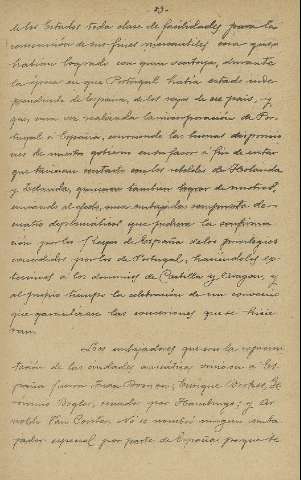 23-
de los Estados toda clase de facilidades para la
consecución de sus fines mercantiles cosa que
habían logrado con gran ventaja, durante
la época en que Portugal había estado inde-
pendiente de España, de los reyes de ese país, y
que, una vez realizada la incorporación de Por-
tugal a España, conociendo las buenas disposicio-
nes de nuestro gobierno en su favor a fin de evitar
que tuviesen contacto con los rebeldes de Holanda
y Zelanda, quisieron también lograr de nosotros,
enviando al efecto, una embajada compuesta de
cuatro diplomáticos que pidiera la confirma-
ción por los Reyes de España de los privilegios
concedidos por los de Portugal, haciéndolos ex-
tensivos a los dominios de Castilla y Aragón, y
al propio tiempo la celebración de un convenio
que garantizase las concesiones que se hicie-
ran.
Los embajadores que con la represen-
tación de las ciudades anseáticas vinieron a Es-
paña fueron Enrique
por Hamburgo; y Ar-
noldo No se nombró ningún emba-
jador especial por parte de España porque te